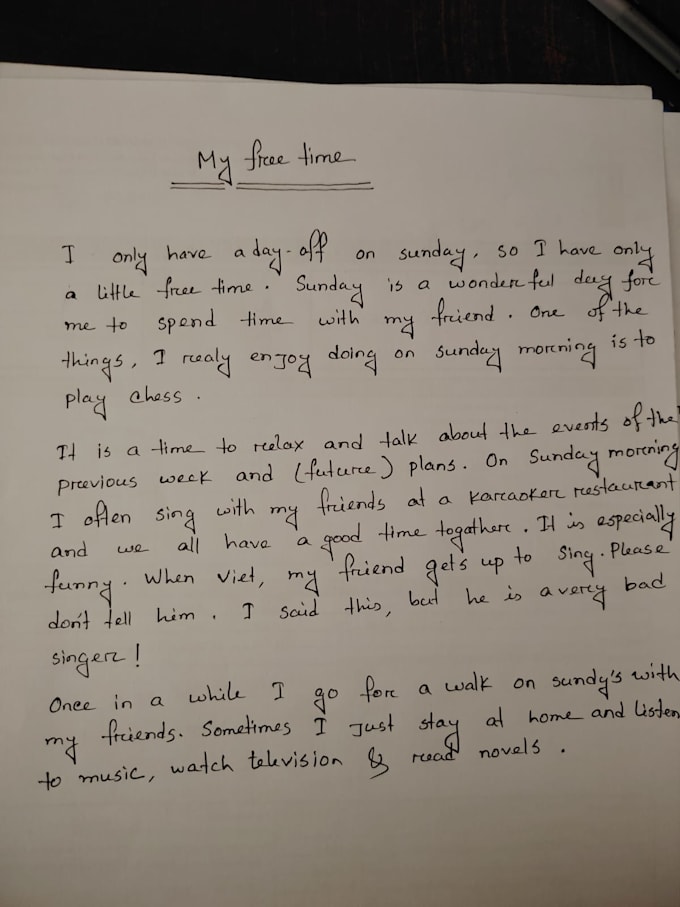 My free time
I only have a day-off on sunday, so I have only
a little free time. Sunday is a wonderful day for
me to spend time with my friend. One of the
things, I realy enjoy doing on sunday morning is to
play chess.
It is a time to relax and talk about the events of the
previous week and (future) plans. On Sunday morning
I often sing with my friends at a karaoker restaurant
and we all have a good time togather. It is especially
funny. When Viet, my friend gets up to sing. Please
don't tell him. I said this, but he is a very bad
singer!
Once in a while I go for a walk on sundy's with
my friends. Sometimes I Just stay at home and listen
to music, watch television & read novels.